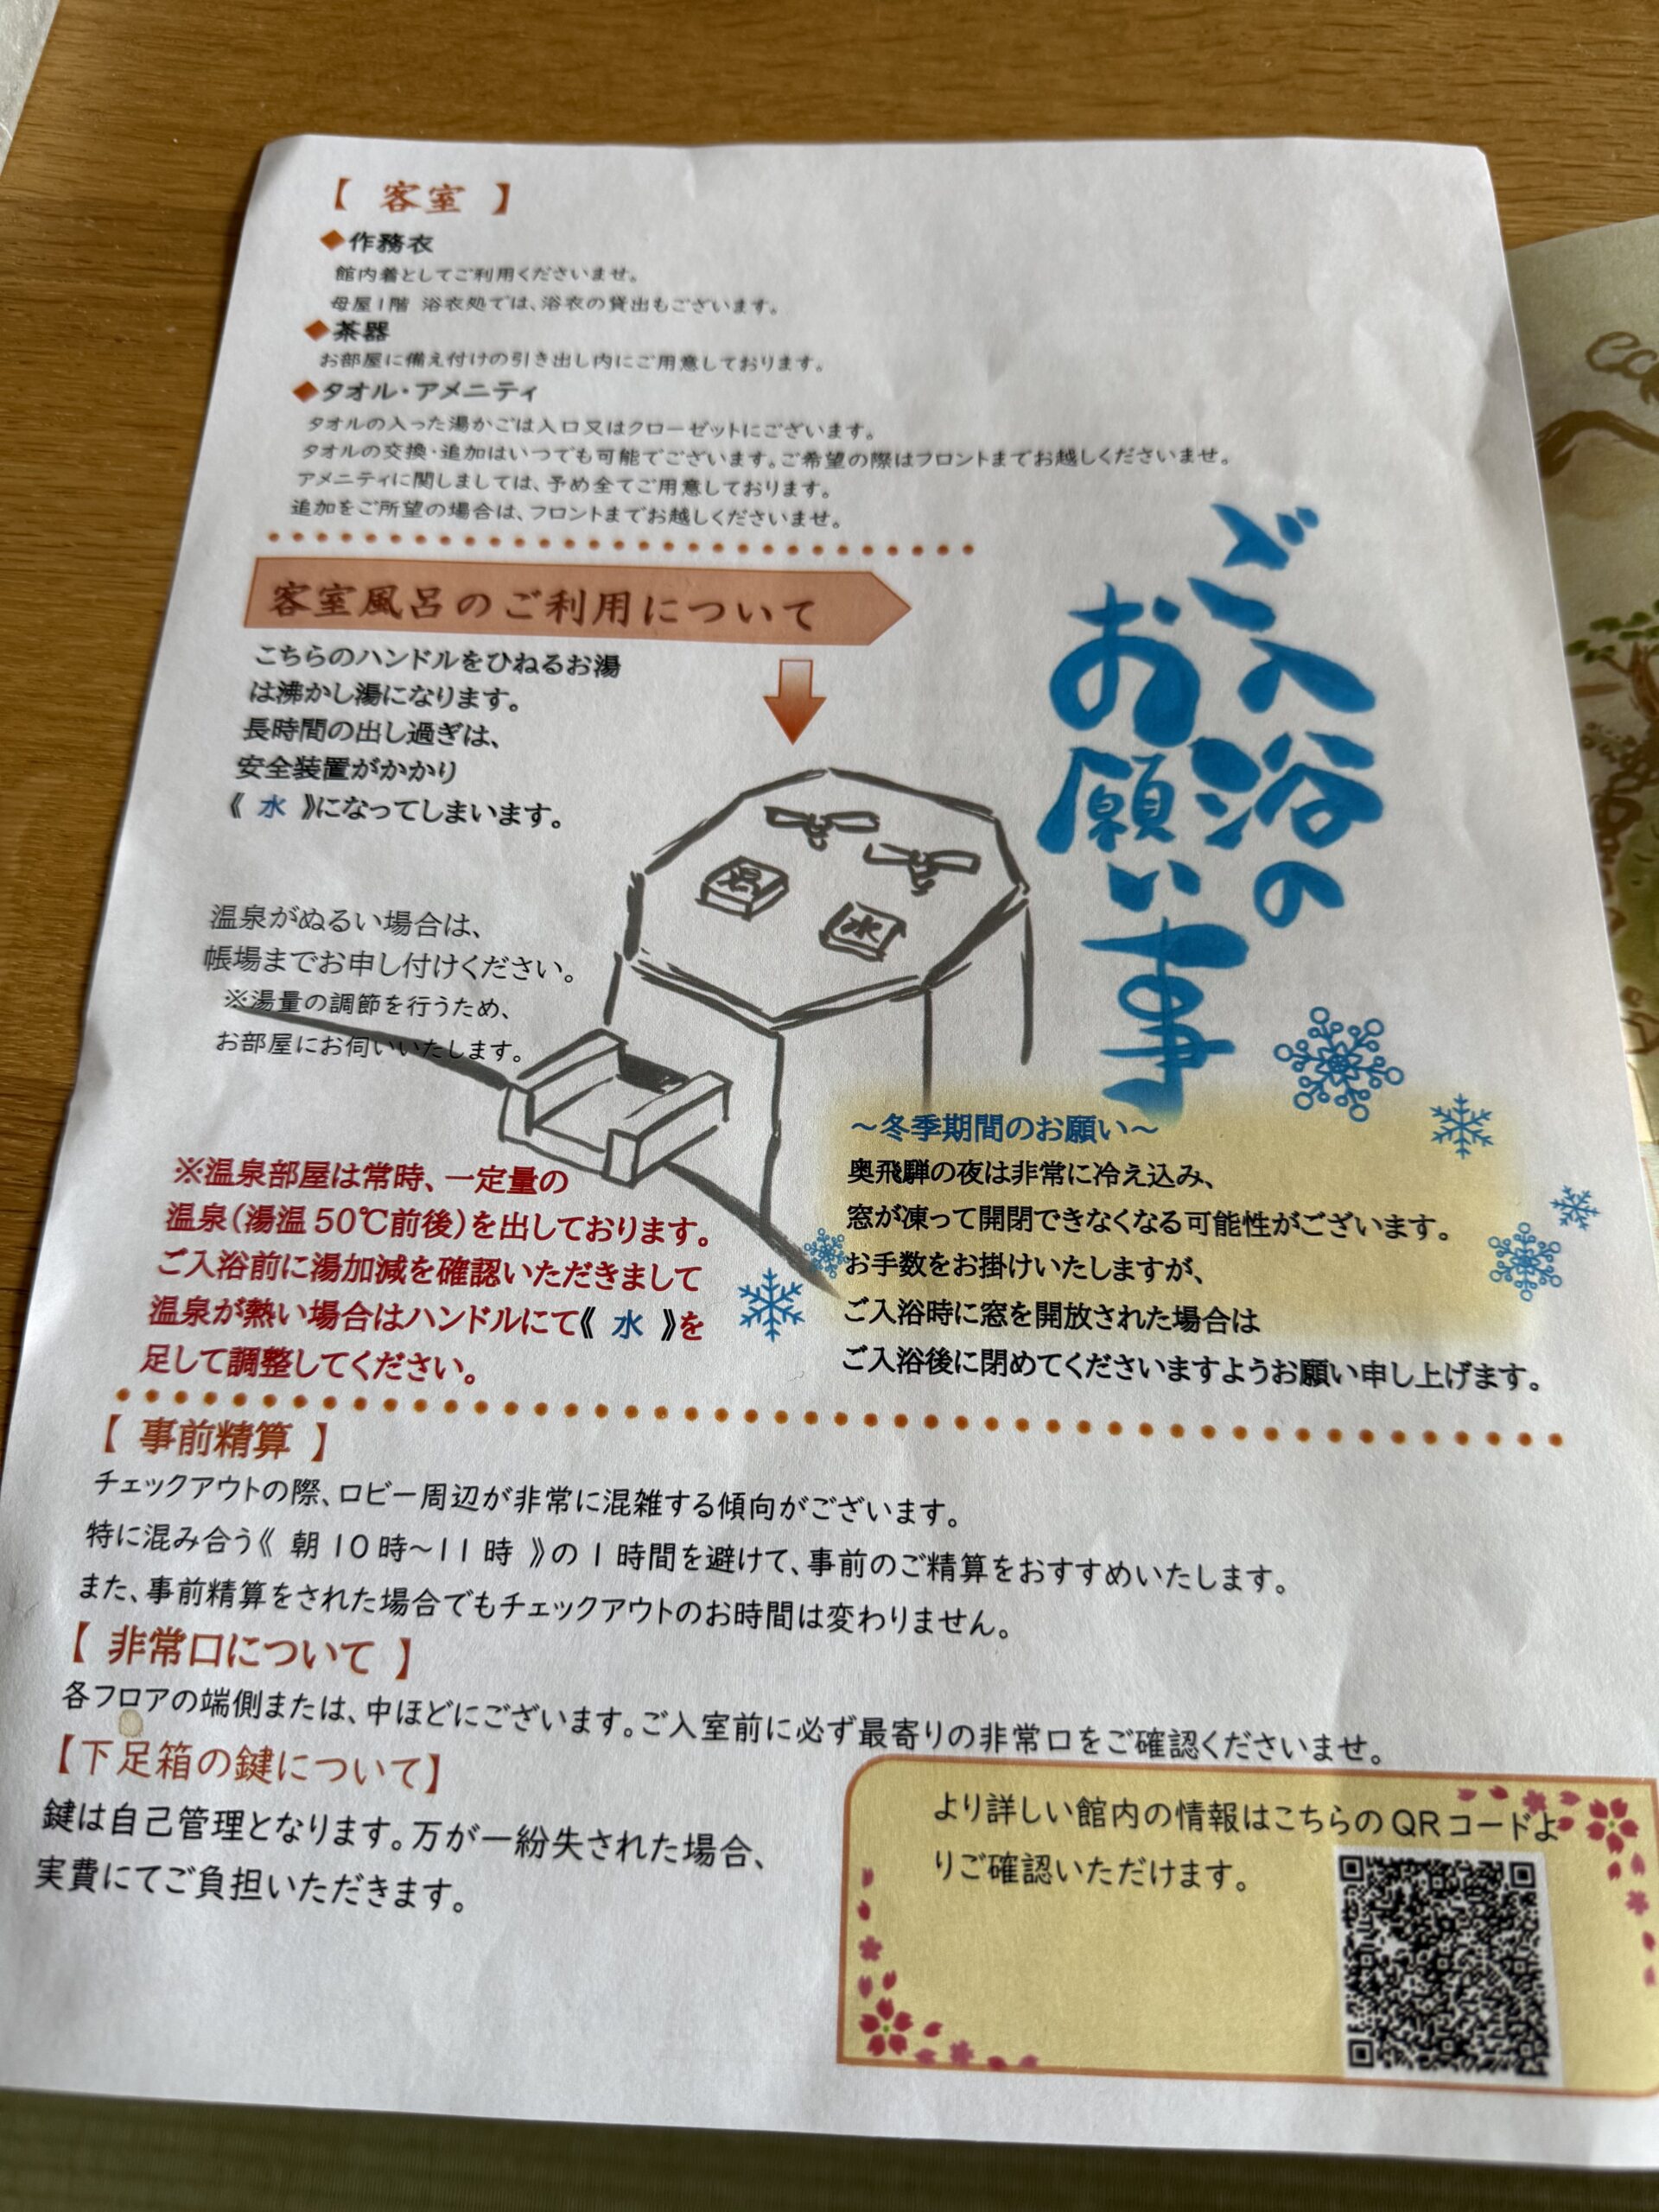 【 客室 】
◆作務衣
館内着としてご利用くださいませ。
母屋1階 浴衣処では、浴衣の貸出もございます。
◆茶器
お部屋に備え付けの引き出し内にご用意しております。
◆タオル・アメニティ
タオルの入った湯かごは入口又はクローゼットにございます。
タオルの交換・追加はいつでも可能でございます。ご希望の際はフロントまでお越しくださいませ。
アメニティに関しましては、予め全てご用意しております。
追加をご所望の場合は、フロントまでお越しくださいませ。
ご入浴の
お願い事
客室風呂のご利用について
こちらのハンドルをひねるお湯
は沸かし湯になります。
長時間の出し過ぎは、
安全装置がかかり
《 水 》になってしまいます。
湯
水
温泉がぬるい場合は、
帳場までお申し付けください。
※湯量の調節を行うため、
お部屋にお伺いいたします。
※温泉部屋は常時、一定量の
温泉(湯温50℃前後)を出しております。
ご入浴前に湯加減を確認いただきまして
温泉が熱い場合はハンドルにて《 水 》を
足して調整してください。
~冬季期間のお願い~
奥飛騨の夜は非常に冷え込み、
窓が凍って開閉できなくなる可能性がございます。
お手数をお掛けいたしますが、
ご入浴時に窓を開放された場合は
ご入浴後に閉めてくださいますようお願い申し上げます。
【 事前精算 】
チェックアウトの際、ロビー周辺が非常に混雑する傾向がございます。
特に混み合う《 朝10時~11時 》の1時間を避けて、事前のご精算をおすすめいたします。
また、事前精算をされた場合でもチェックアウトのお時間は変わりません。
【 非常口について 】
各フロアの端側または、中ほどにございます。ご入室前に必ず最寄りの非常口をご確認くださいませ。
【下足箱の鍵について】
鍵は自己管理となります。万が一紛失された場合、
実費にてご負担いただきます。
より詳しい館内の情報はこちらのQRコードよ
りご確認いただけます。